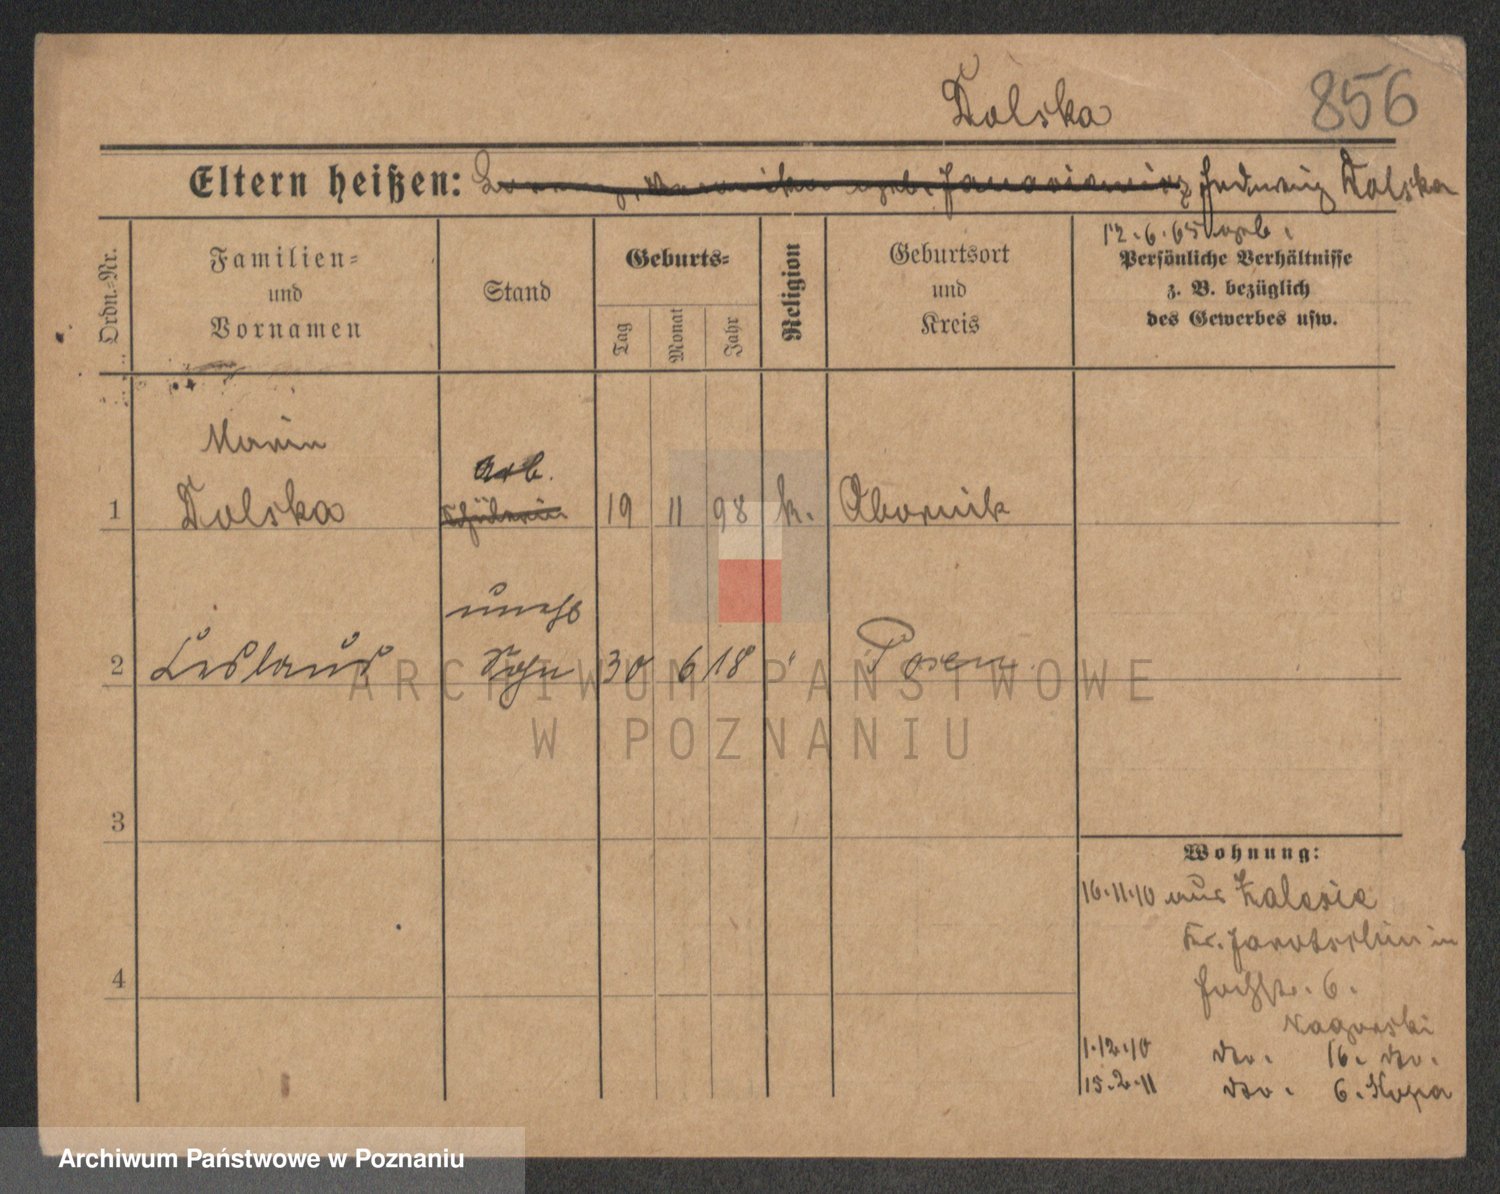 Dolska
856
Eltern heißen: Veronika geb. Januszewicz Hedwig Dolska
12.6.65 geb.
Ordn.-Nr.
Familien-
und
Vornamen
Stand
Geburts-
Tag
Monat
Jahr
Religion
Geburtsort
und
Kreis
Persönliche Verhältnisse
z. B. bezüglich
des Gewerbes usw.
Marie
Arb.
1 Dolska Schülerin 19 11 98 k. Obornik
unehl
2 Ceslaus Sohn 30 6 18 " Posen
ARCHIWUM PAŃSTWOWE
W POZNANIU
3
4
Wohnung:
16.11.10 aus Zalesie
Kr. Jarotschin in
6.
Nagorski
1.12.10 do. 16. do.
15.2.11 do. 6. Kopa
Archiwum Państwowe w Poznaniu